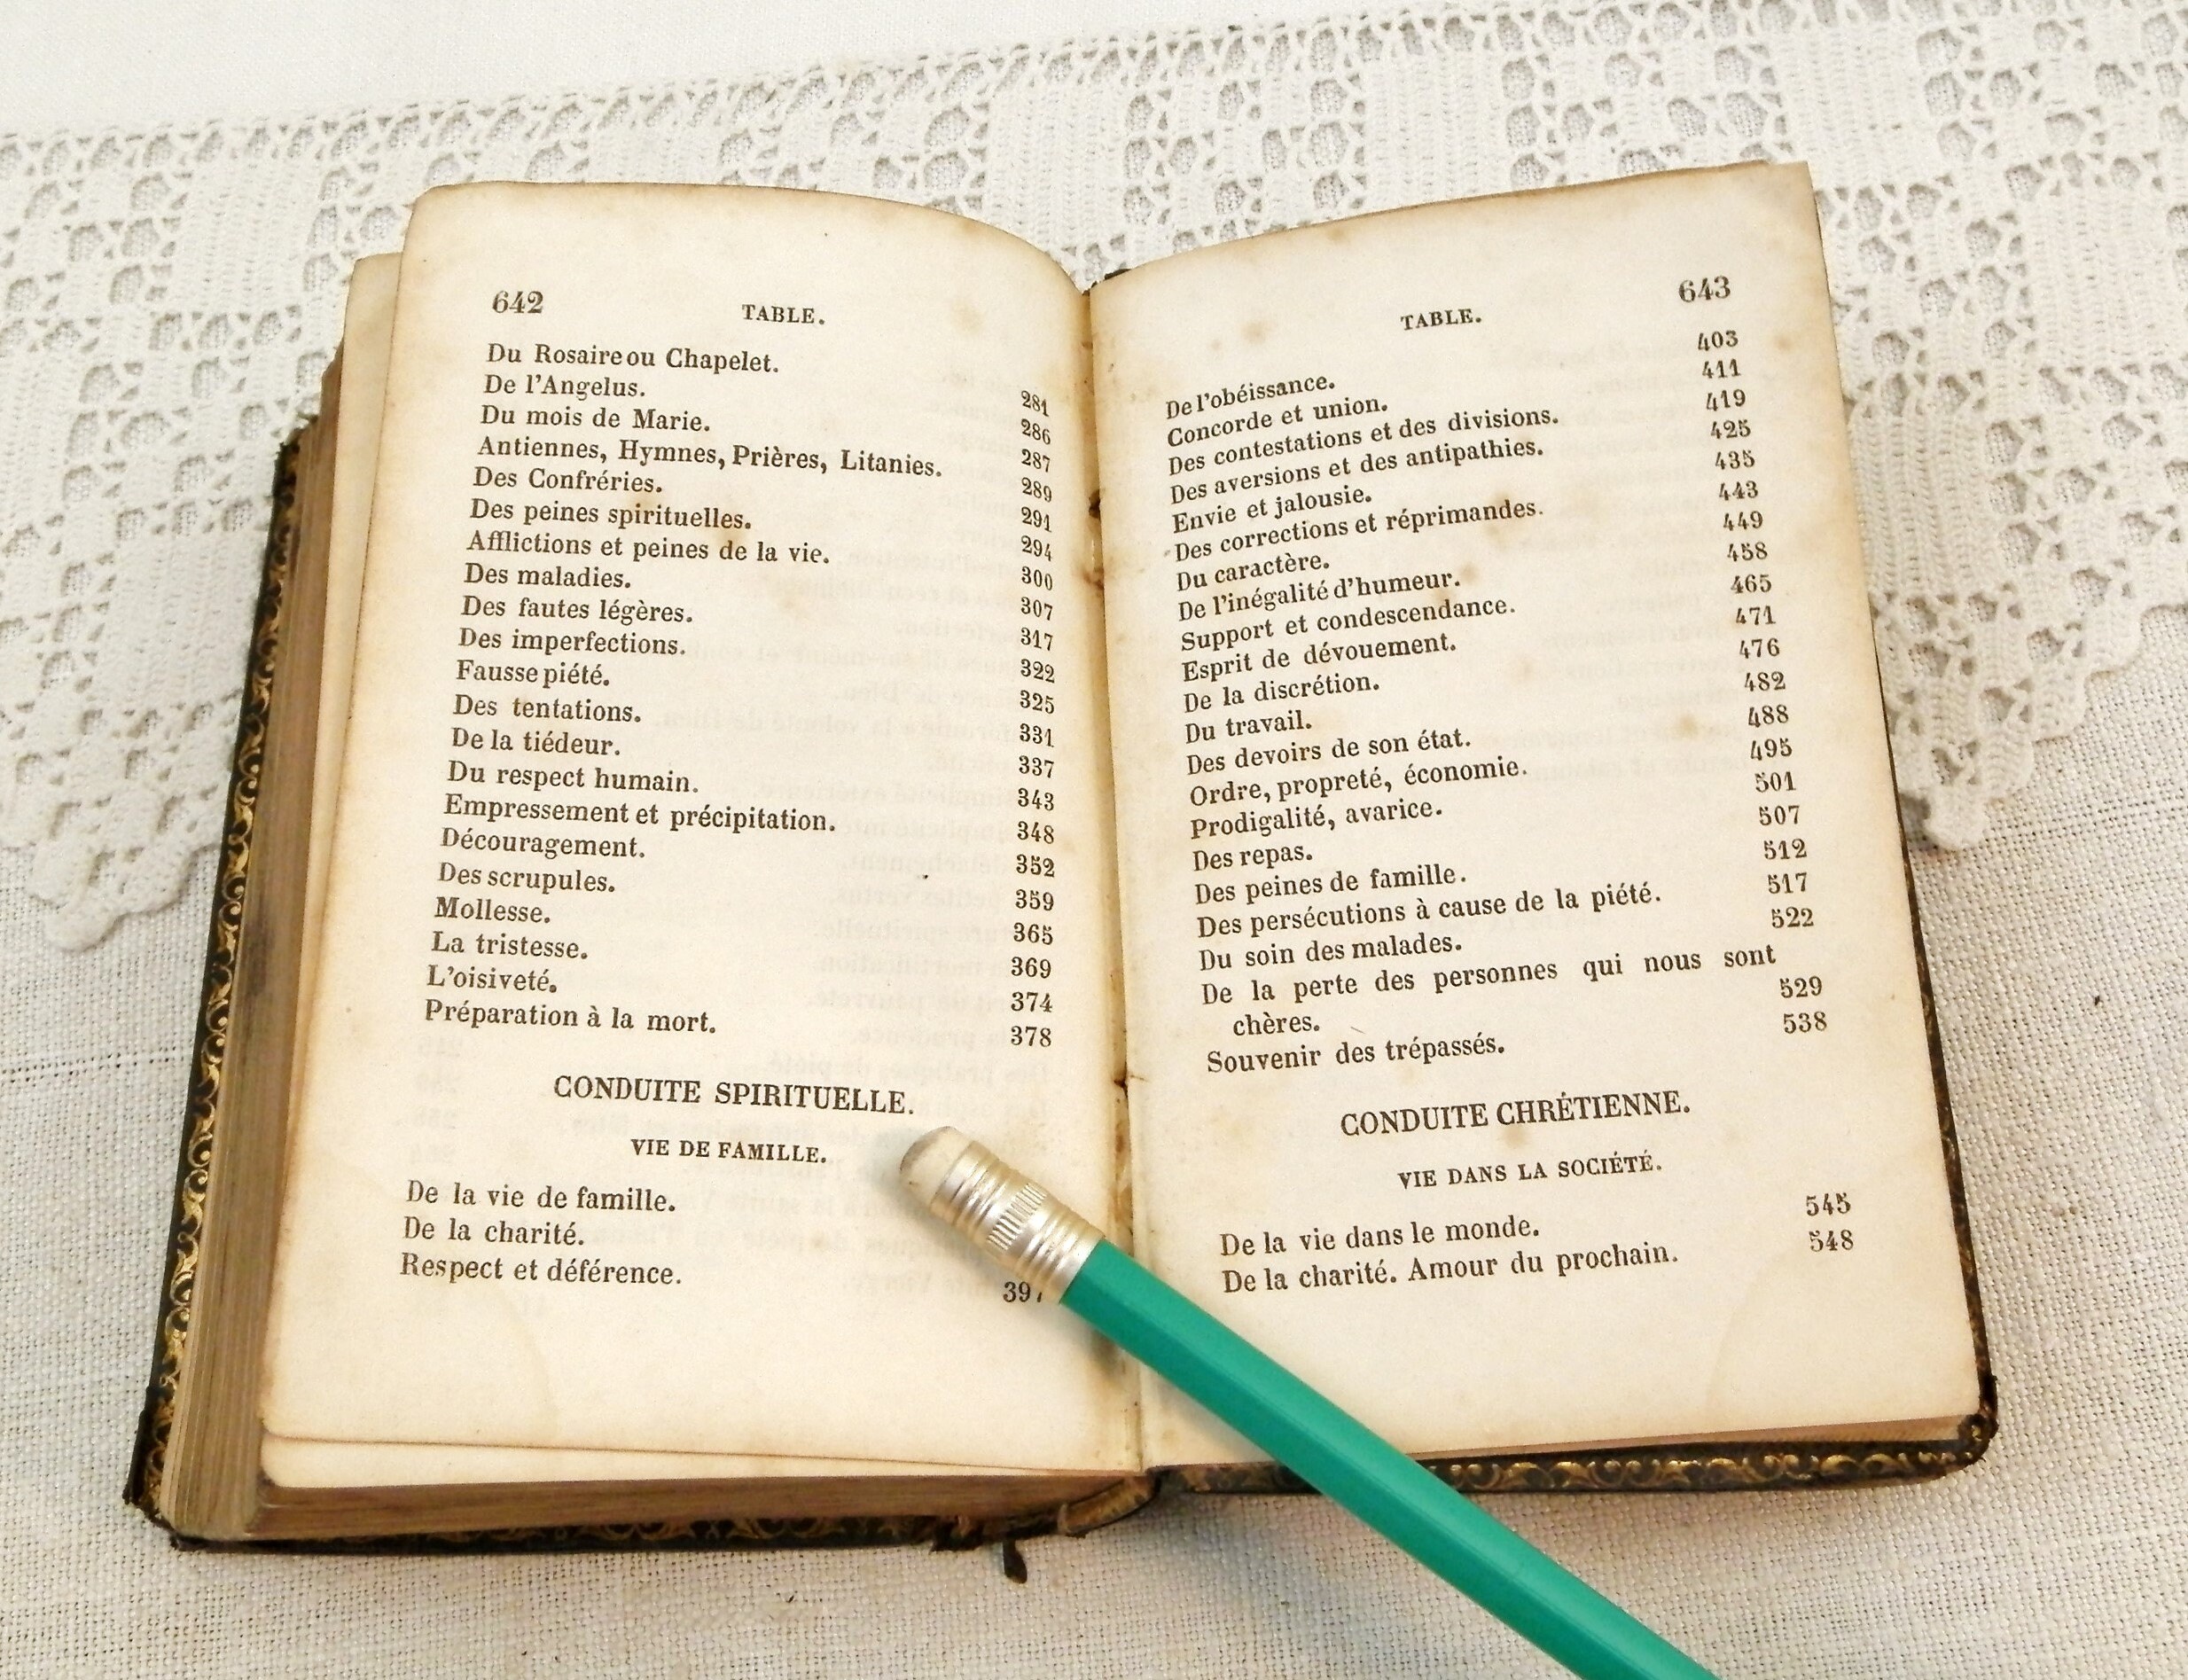 642 TABLE.
Du Rosaire ou Chapelet. 281
De l'Angelus. 286
Du mois de Marie. 287
Antiennes, Hymnes, Prières, Litanies. 289
Des Confréries. 291
Des peines spirituelles. 294
Afflictions et peines de la vie. 300
Des maladies. 307
Des fautes légères. 317
Des imperfections. 322
Fausse piété. 325
Des tentations. 331
De la tiédeur. 337
Du respect humain. 343
Empressement et précipitation. 348
Découragement. 352
Des scrupules. 359
Mollesse. 365
La tristesse. 369
L'oisiveté. 374
Préparation à la mort. 378
CONDUITE SPIRITUELLE.
VIE DE FAMILLE.
De la vie de famille.
De la charité.
Respect et déférence.
TABLE. 643
De l'obéissance. 403
Concorde et union. 411
Des contestations et des divisions. 419
Des aversions et des antipathies. 425
Envie et jalousie. 435
Des corrections et réprimandes. 443
Du caractère. 449
De l'inégalité d'humeur. 458
Support et condescendance. 465
Esprit de dévouement. 471
De la discrétion. 476
Du travail. 482
Des devoirs de son état. 488
Ordre, propreté, économie. 495
Prodigalité, avarice. 501
Des repas. 507
Des peines de famille. 512
Des persécutions à cause de la piété. 517
Du soin des malades. 522
De la perte des personnes qui nous sont
chères. 529
Souvenir des trépassés. 538
CONDUITE CHRÉTIENNE.
VIE DANS LA SOCIÉTÉ.
De la vie dans le monde. 545
De la charité. Amour du prochain. 548